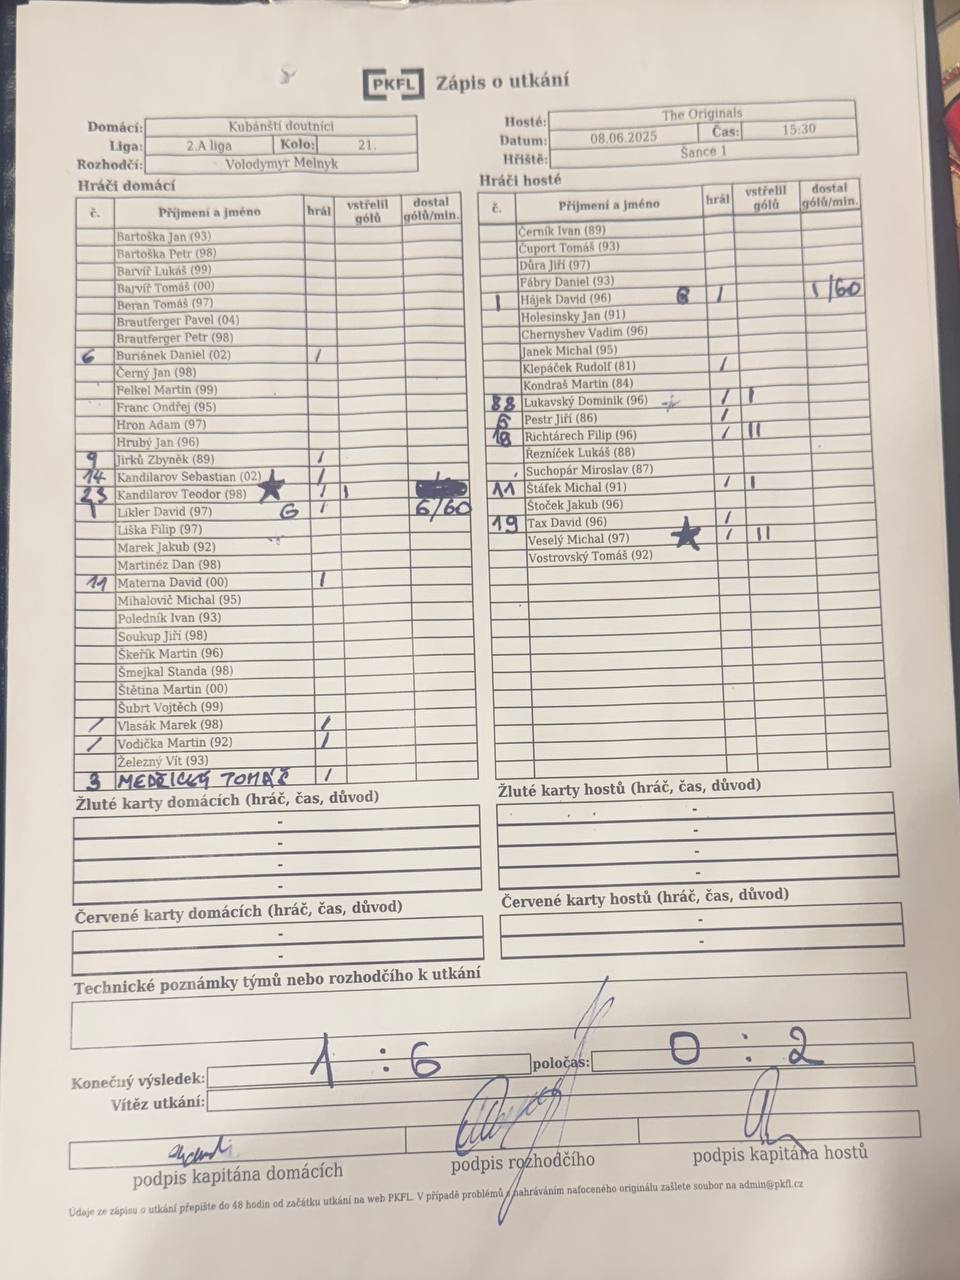 PKFL Zápis o utkání
Domácí: Kubánští doutníci
Liga: 2.A liga Kolo: 21.
Rozhodčí: Volodymyr Melnyk
Hosté: The Originals
Datum: 08.06.2025 Čas: 15:30
Hřiště: Šance 1
Hráči domácí
č. Příjmení a jméno hrál vstřelil gólů dostal gólů/min.
Bartoška Jan (93)
Bartoška Petr (98)
Barvíř Lukáš (99)
Barvíř Tomáš (00)
Beran Tomáš (97)
Brautferger Pavel (04)
Brautferger Petr (98)
6 Buriánek Daniel (02) /
Černý Jan (98)
Felkel Martin (99)
Franc Ondřej (95)
Hron Adam (97)
Hrubý Jan (96)
9 Jirků Zbyněk (89) /
14 Kandilarov Sebastian (02) /
23 Kandilarov Teodor (98) ★ / I
1 Likler David (97) G / 6/60
Liška Filip (97)
Marek Jakub (92)
Martinéz Dan (98)
11 Materna David (00) /
Mihalovič Michal (95)
Poledník Ivan (93)
Soukup Jiří (98)
Škeřík Martin (96)
Šmejkal Standa (98)
Štětina Martin (00)
Šubrt Vojtěch (99)
/ Vlasák Marek (98) /
/ Vodička Martin (92) /
Železný Vít (93)
3 MEDŘICKÝ TOMÁŠ /
Hráči hosté
č. Příjmení a jméno hrál vstřelil gólů dostal gólů/min.
Černík Ivan (89)
Čuport Tomáš (93)
Důra Jiří (97)
Fábry Daniel (93)
1 Hájek David (96) G / 1/60
Holesinsky Jan (91)
Chernyshev Vadim (96)
Janek Michal (95)
Klepáček Rudolf (81) /
Kondraš Martin (84)
88 Lukavský Dominik (96) / I
Pestr Jiří (86) /
18 Richtárech Filip (96) / II
Řezníček Lukáš (88)
Suchopár Miroslav (87)
11 Štáfek Michal (91) / I
Štoček Jakub (96)
19 Tax David (96) /
Veselý Michal (97) ★ / II
Vostrovský Tomáš (92)
Žluté karty domácích (hráč, čas, důvod)
-
-
-
-
Žluté karty hostů (hráč, čas, důvod)
-
-
-
-
Červené karty domácích (hráč, čas, důvod)
-
-
Červené karty hostů (hráč, čas, důvod)
-
-
Technické poznámky týmů nebo rozhodčího k utkání
Konečný výsledek: 1 : 6 poločas: 0 : 2
Vítěz utkání:
podpis kapitána domácích podpis rozhodčího podpis kapitána hostů
Údaje ze zápisu o utkání přepište do 48 hodin od začátku utkání na web PKFL. V případě problémů s nahráváním nafoceného originálu zašlete soubor na admin@pkfl.cz